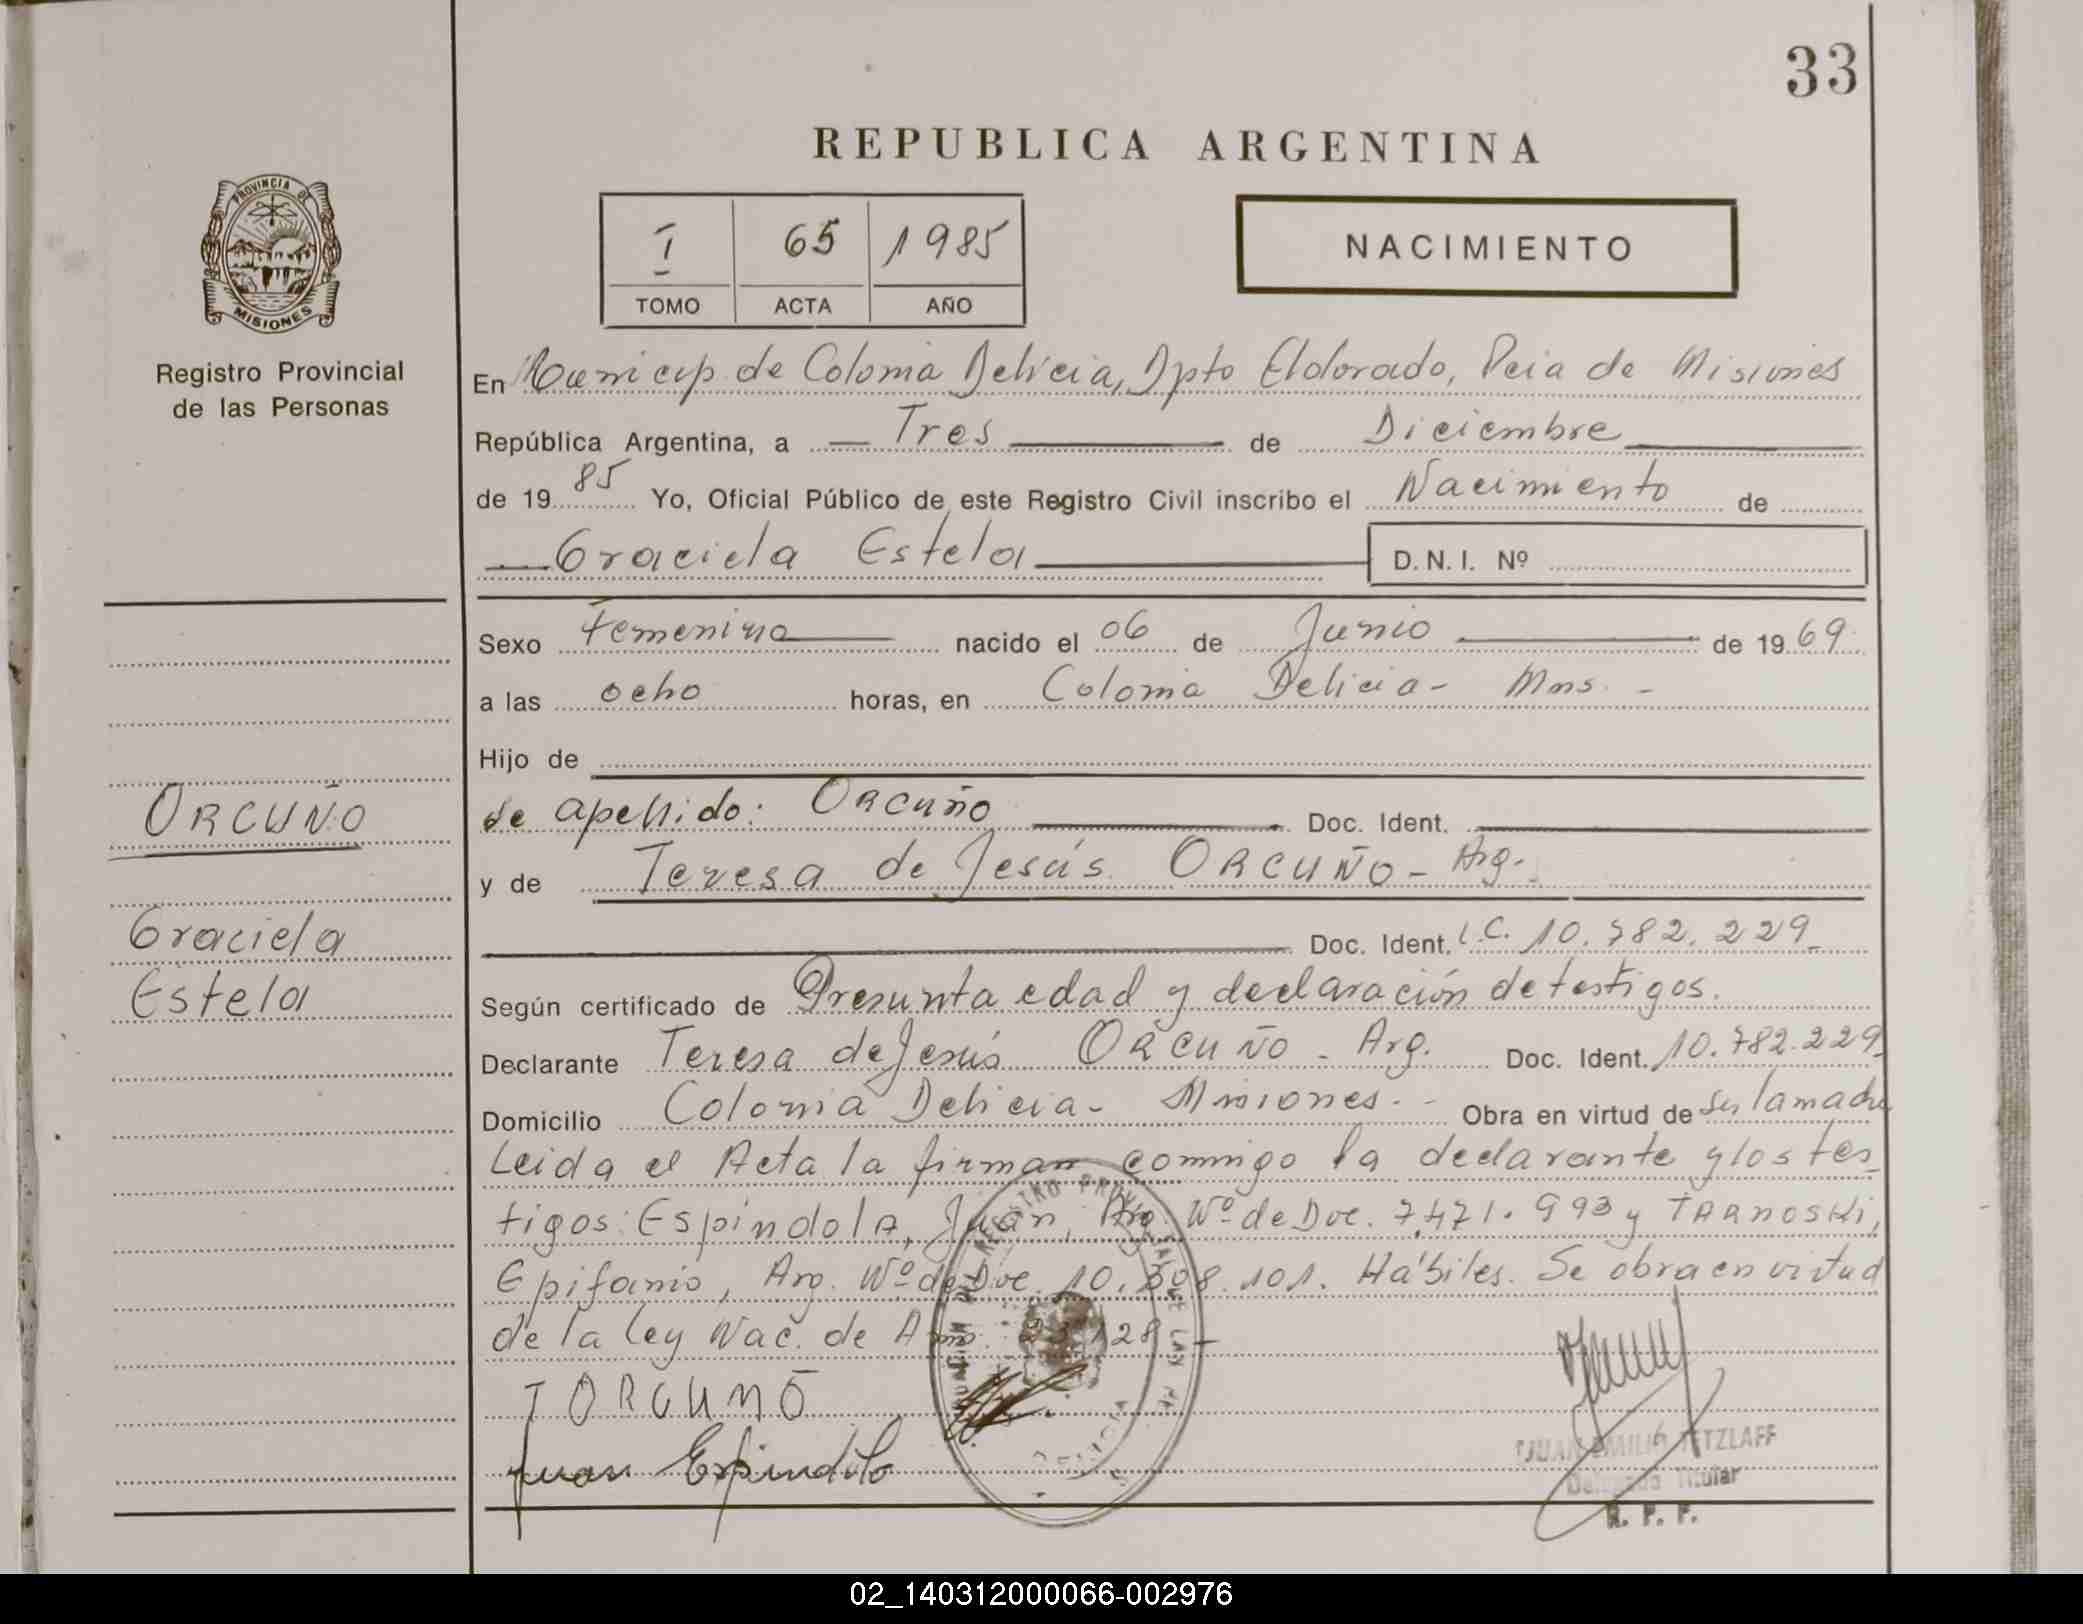 33
REPUBLICA ARGENTINA
PROVINCIA DE
MISIONES
Registro Provincial
de las Personas
I 65 1985
TOMO ACTA AÑO
NACIMIENTO
En Municip de Colonia Delicia, Dpto Eldorado, Pcia de Misiones
República Argentina, a Tres de Diciembre
de 19 85 Yo, Oficial Público de este Registro Civil inscribo el Nacimiento de
Graciela Estela D.N.I. Nº
Sexo Femenino nacido el 06 de Junio de 19 69
a las ocho horas, en Colonia Delicia - Mns. -
Hijo de
de apellido: ORCUÑO Doc. Ident.
y de Teresa de Jesús ORCUÑO - Arg.
Doc. Ident. L.C. 10.782.229
Según certificado de Presunta edad y declaración de testigos.
Declarante Teresa de Jesús ORCUÑO - Arg. Doc. Ident. 10.782.229
Domicilio Colonia Delicia - Misiones. - Obra en virtud de ser la madre
Leida el Acta la firman conmigo la declarante y los tes
tigos: Espíndola, Juan, Arg. Nº de Doc. 7.471.993 y TARNOSKI,
Epifanio, Arg. Nº de Doc. 10. .101. Hábiles. Se obra en virtud
de la Ley Nac. de Amn. 23.128 -
T ORCUÑO
Juan Espindola
JUAN EMILIO TETZLAFF
Delegado Titular
R. P. P.
ORCUÑO
Graciela
Estela
02_140312000066-002976